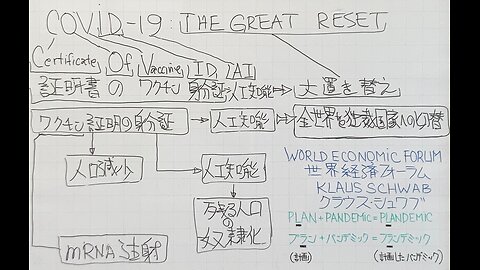 COVID-19: THE GREAT RESET
Certificate Of Vaccine ID AI
証明書 の ワクチン 身分証 人工知能 大置き替え
ワクチン証明の身分証 人工知能 全世界を独裁国家への切替
人口減少 人工知能
残る人口
の
奴隷化
mRNA注射
WORLD ECONOMIC FORUM
世界経済フォーラム
KLAUS SCHWAB
クラウス・シュワブ
PLAN + PANDEMIC = PLANDEMIC
プラン + パンデミック = プランデミック
(計画) (計画したパンデミック)